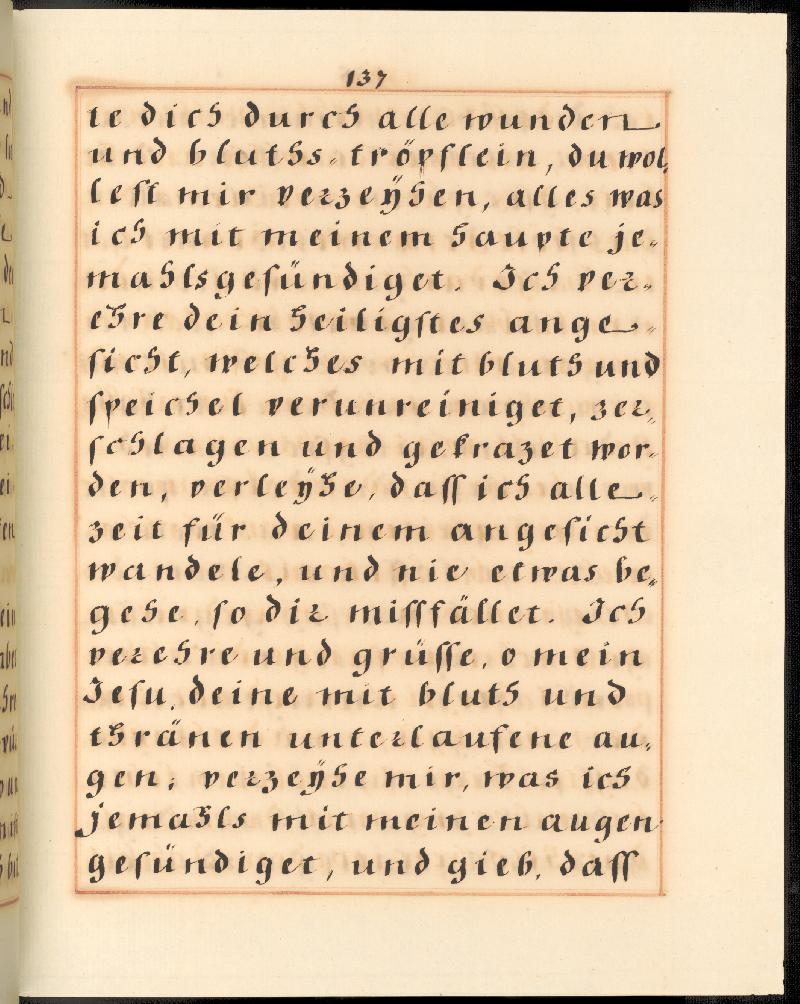 137
te dich durch alle wunden
und bluths-tröpflein, du wol,
leſt mir verzeÿhen, alles was
ich mit meinem haupte je-
mahlsgeſündiget. Ich ver-
ehre dein heiligſtes ange-
ſicht, welches mit bluth und
ſpeichel verunreiniget, zer-
ſchlagen und gekrazet wor-
den, verleÿhe, daſſ ich alle-
zeit für deinem angeſicht
wandele, und nie etwas be-
gehe, ſo dir miſſfället. Ich
verehre und grüſſe, o mein
Jeſu, deine mit bluth und
thränen unterlaufene au-
gen; verzeÿhe mir, was ich
jemahls mit meinen augen
geſündiget, und gieb, daſſ